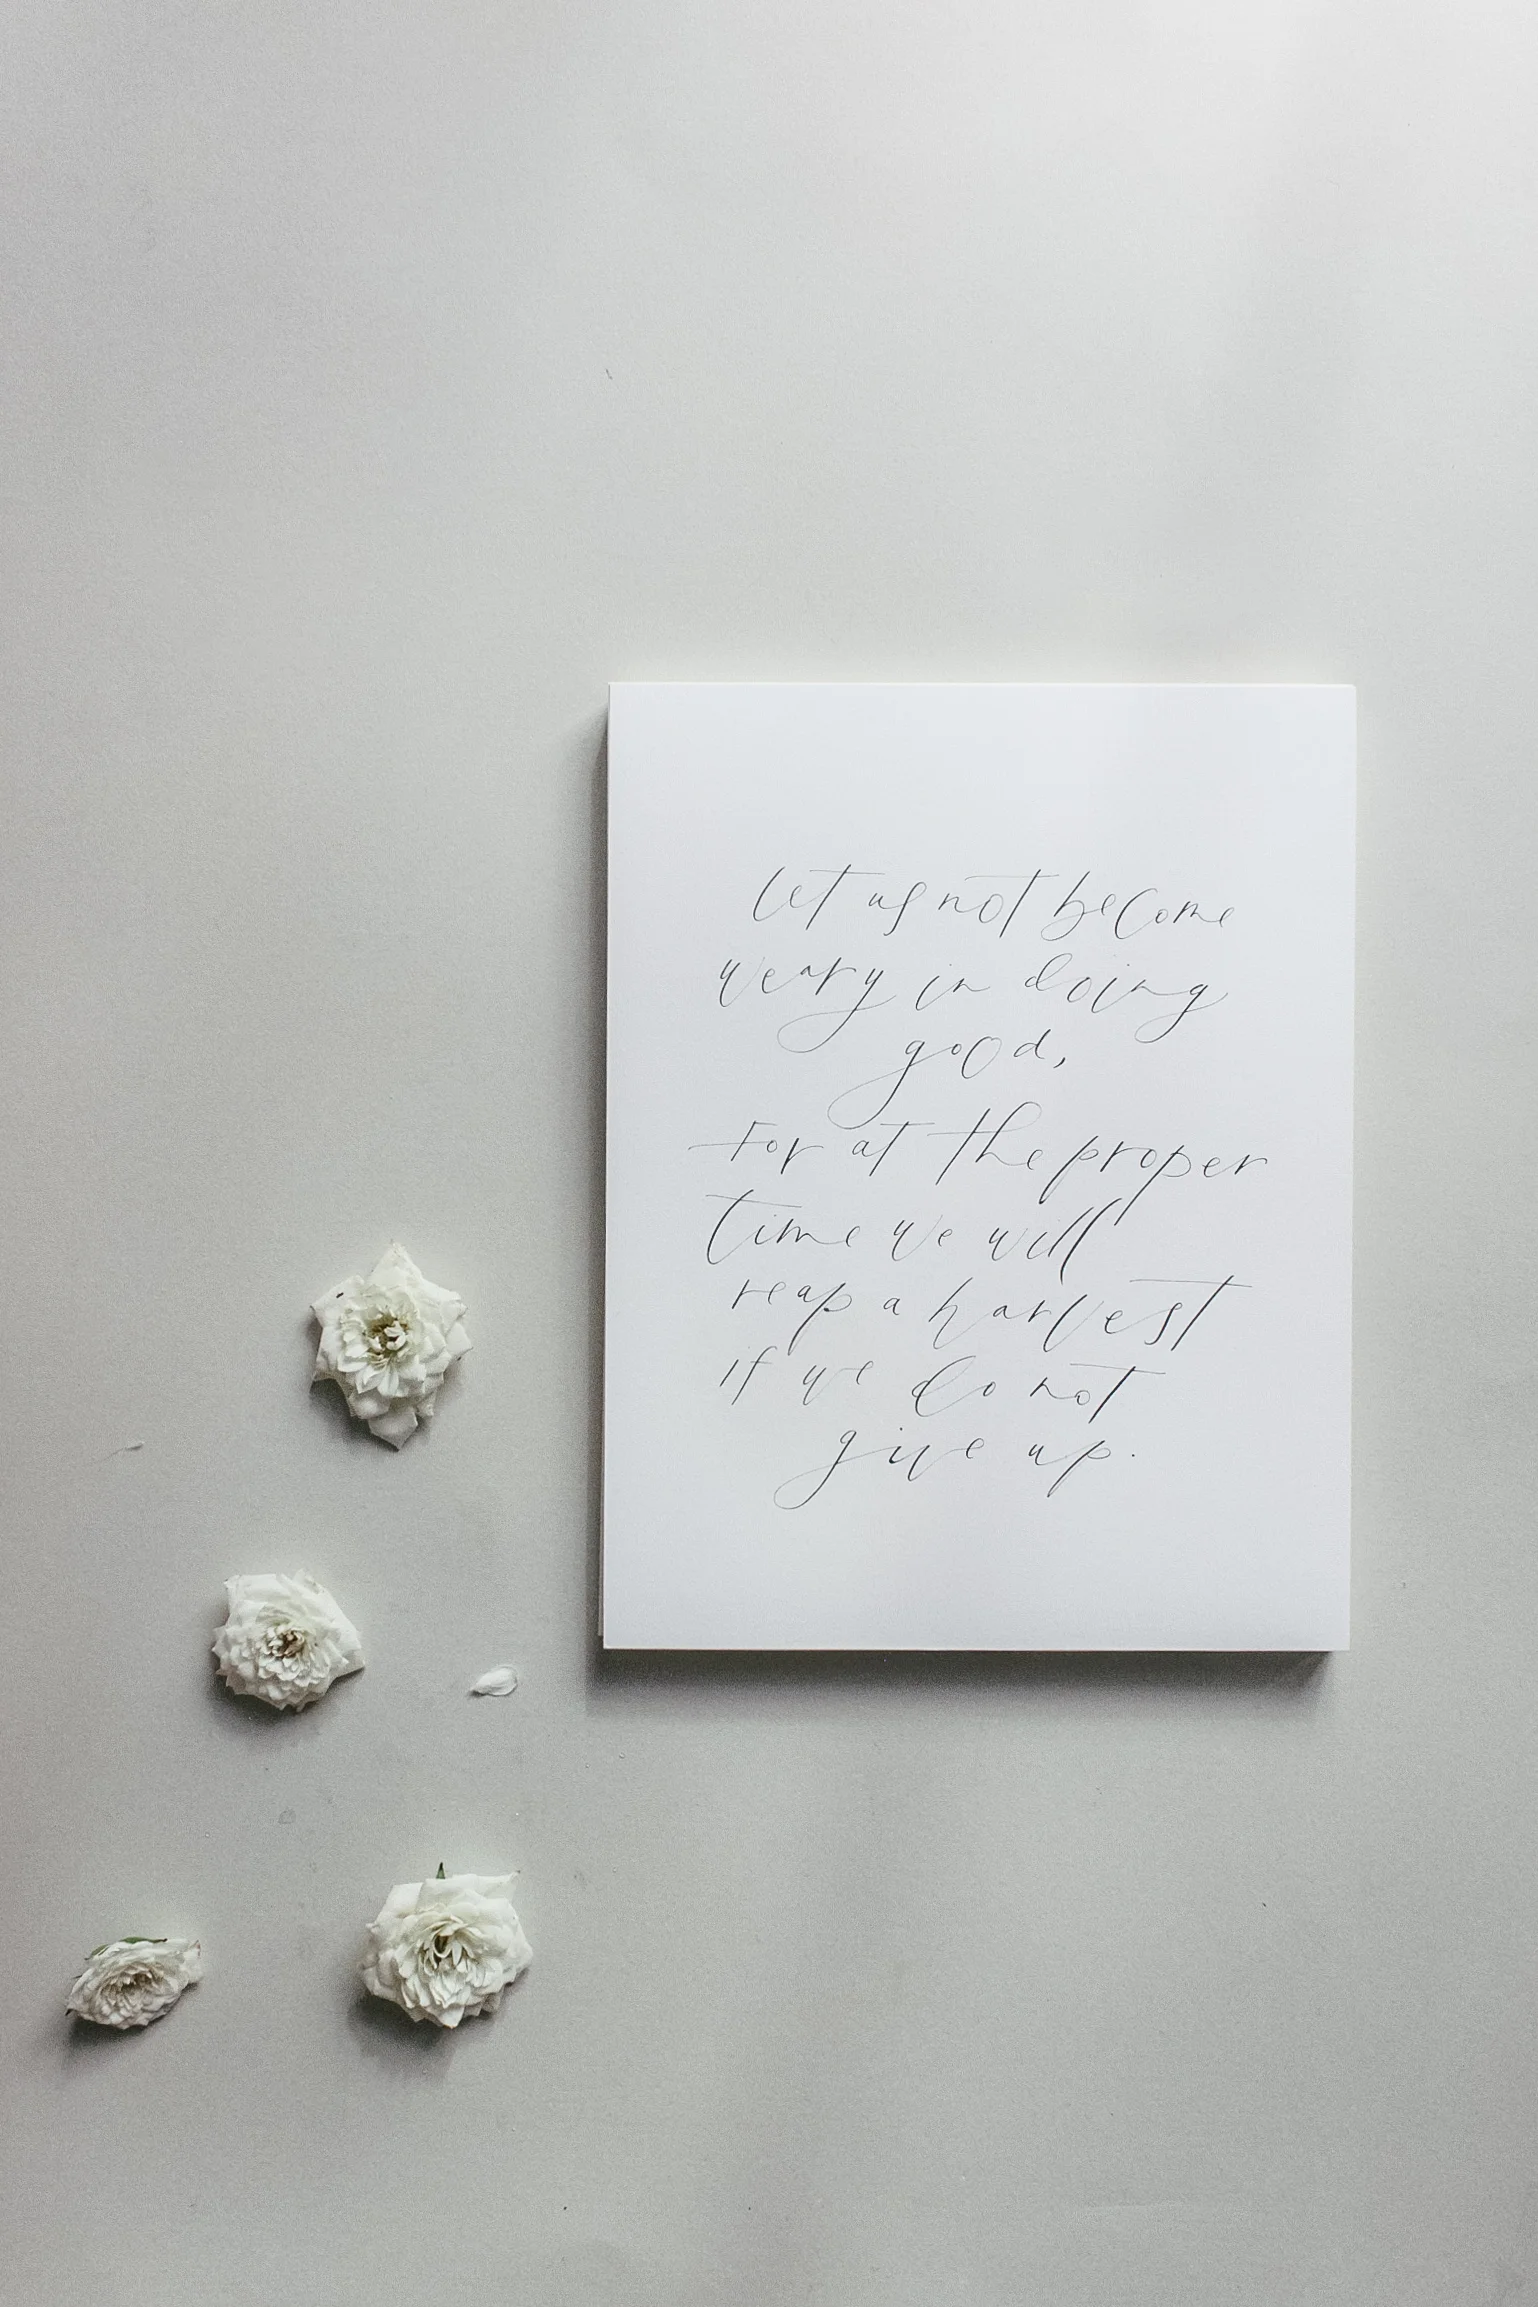 Let us not become
weary in doing
good,
For at the proper
time we will
reap a harvest
if we do not
give up.